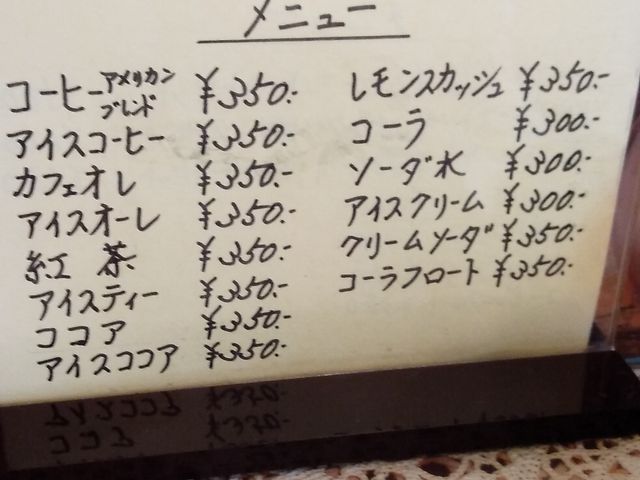 メニュー
コーヒー アメリカン ブレンド ¥350.-
アイスコーヒー ¥350.-
カフェオレ ¥350.-
アイスオーレ ¥350.-
紅 茶 ¥350.-
アイスティー ¥350.-
ココア ¥350.-
アイスココア ¥350.-
レモンスカッシュ ¥350.-
コーラ ¥300.-
ソーダ水 ¥300.-
アイスクリーム ¥300.-
クリームソーダ ¥350.-
コーラフロート ¥350.-